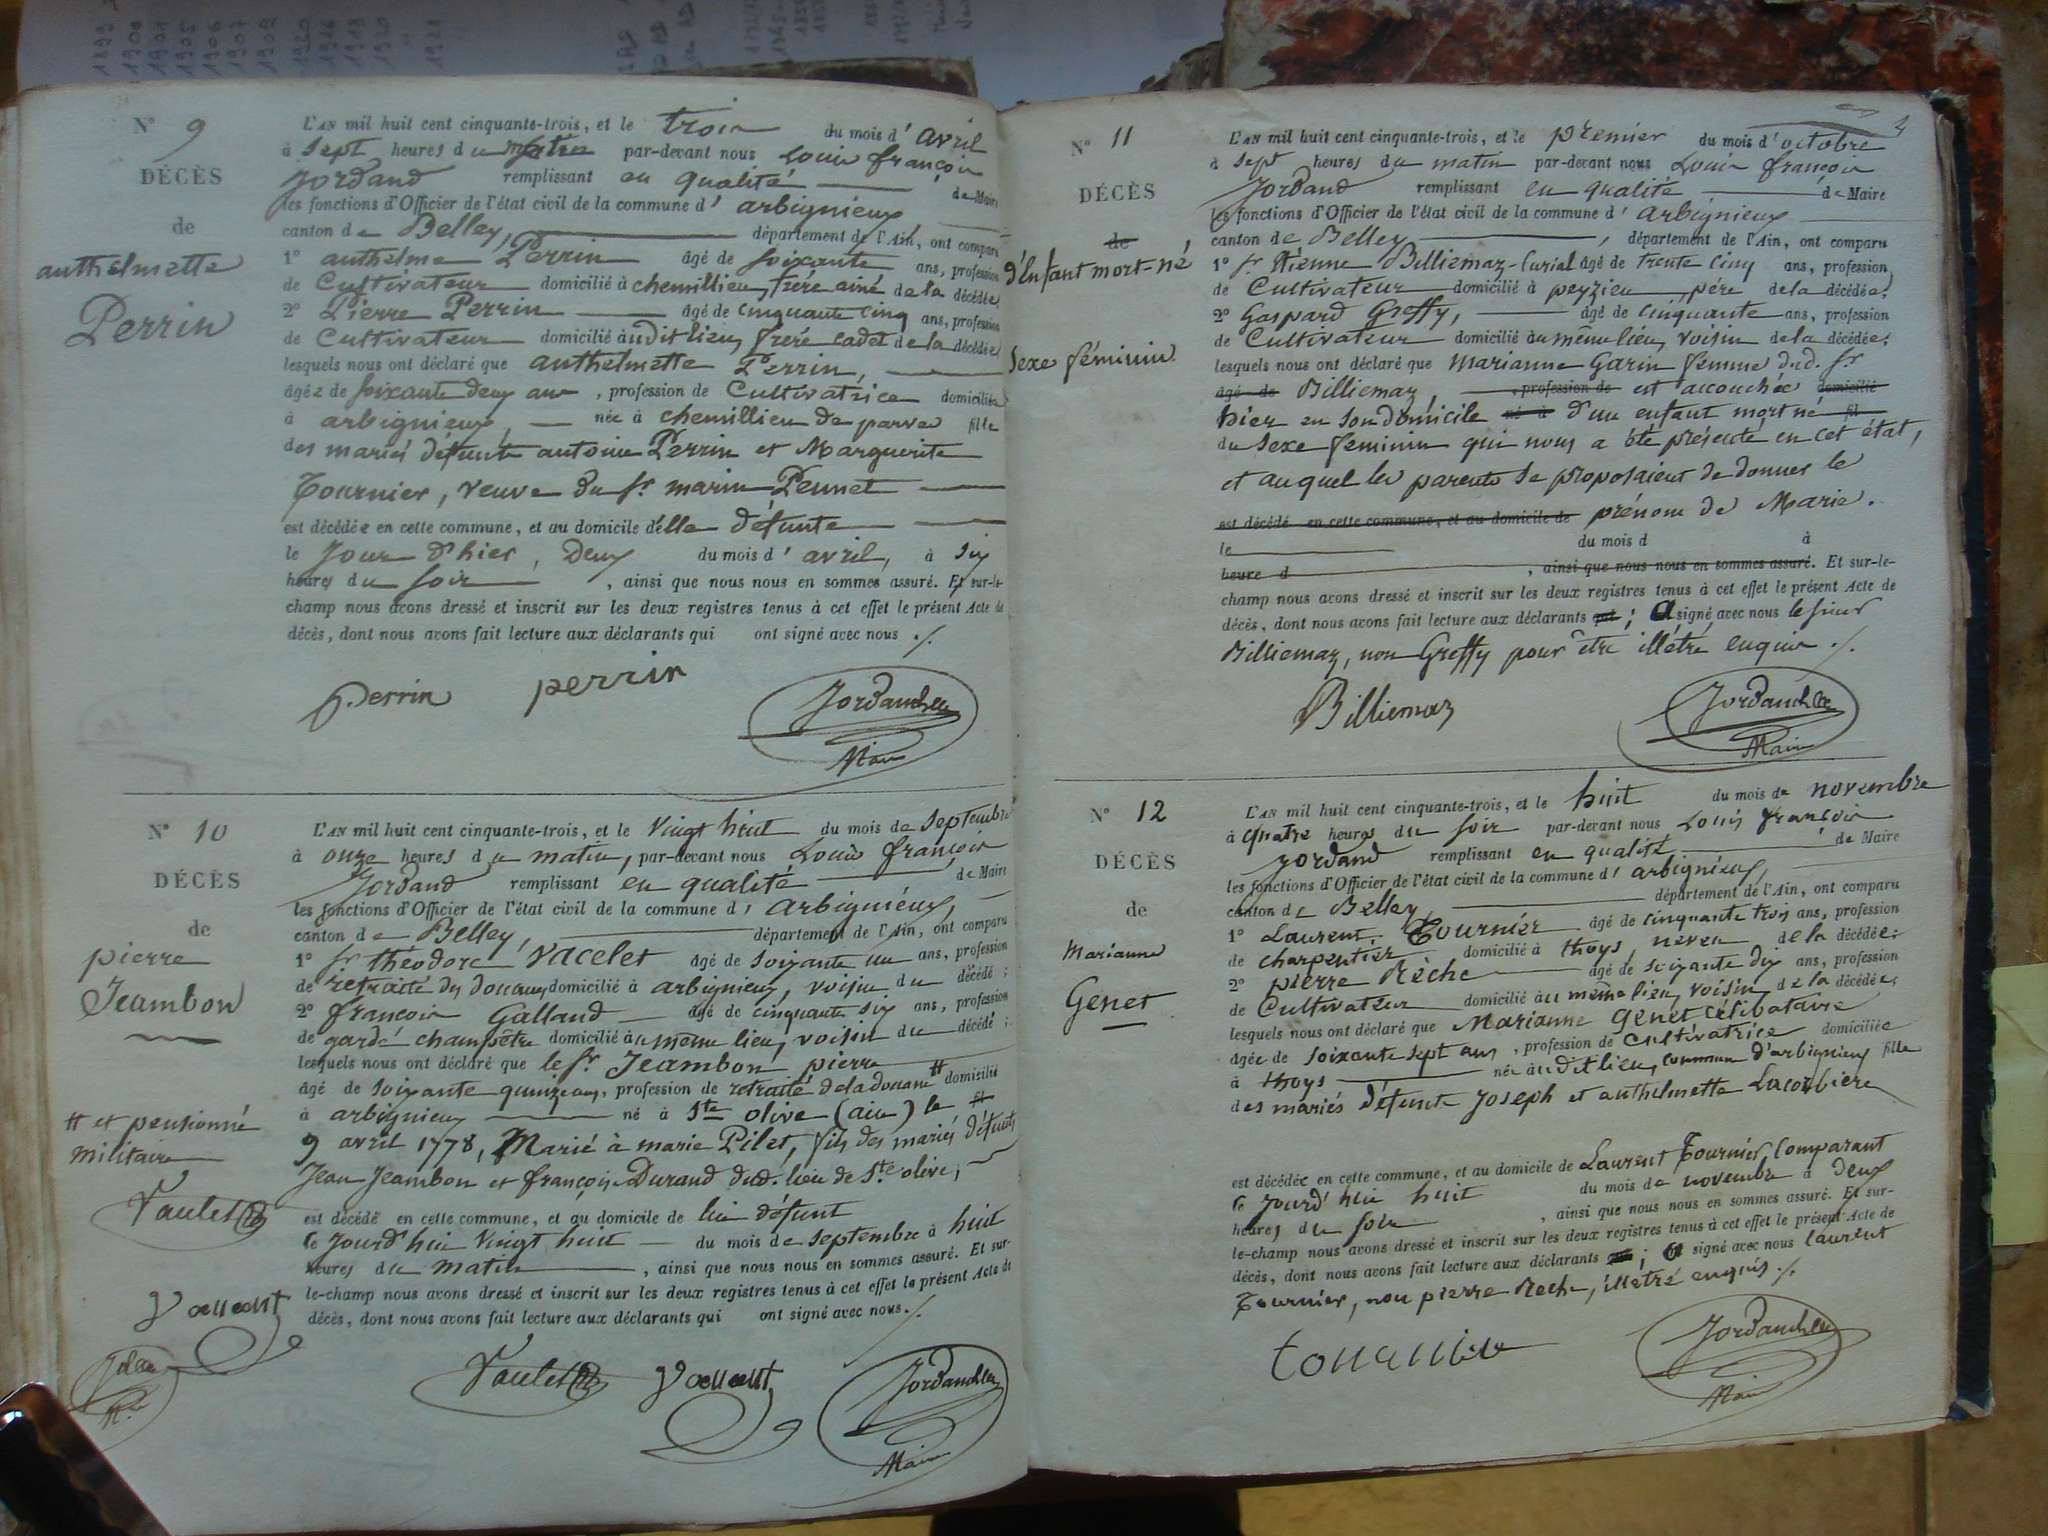 N° 9
DÉCÈS
de
anthelmette
Perrin
L'AN mil huit cent cinquante-trois, et le trois du mois d' avril
à sept heures du matin par-devant nous Louis françois
Jordand remplissant en qualité de Maire
les fonctions d'Officier de l'état civil de la commune d' arbignieux
canton de Belley, département de l'Ain, ont comparu
1° anthelme Perrin âgé de soixante ans, profession
de Cultivateur domicilié à chemillieu, frére ainé de la décédée,
2° Pierre Perrin âgé de cinquante cinq ans, profession
de Cultivateur domicilié audit lieu, frére cadet de la décédée
lesquels nous ont déclaré que anthelmette Perrin,
âgée de soixante deux ans, profession de Cultivatrice domiciliée
à arbignieux, née à chemillieu de parves fille
des mariés défunts antoine Perrin et Marguerite
Tournier, veuve du sr. marin Pennet
est décédée en cette commune, et au domicile d'elle défunte
le Jour d'hier, deux du mois d' avril, à six
heures du soir, ainsi que nous nous en sommes assuré. Et sur-le-
champ nous avons dressé et inscrit sur les deux registres tenus à cet effet le présent Acte de
décès, dont nous avons fait lecture aux déclarants qui ont signé avec nous ./.
P. Perrin perrin Jordand
Maire
N° 10
DÉCÈS
de
pierre
Jeambon
L'AN mil huit cent cinquante-trois, et le vingt huit du mois de septembre
à onze heures du matin, par-devant nous Louis françois
Jordand remplissant en qualité de Maire
les fonctions d'Officier de l'état civil de la commune d' arbignieux,
canton de Belley, département de l'Ain, ont comparu
1° sr. théodore vacelet âgé de soixante un ans, profession
de retraité des douanes, domicilié à arbignieux, voisin du décédé ;
2° françois Galland âgé de cinquante six ans, profession
de garde champêtre domicilié au même lieu, voisin du décédé ;
lesquels nous ont déclaré que le sr. Jeambon pierre
âgé de soixante quinze ans, profession de retraité de la douane # domicilié
à arbignieux né à Ste olive (ain) le fil
9 avril 1778, Marié à marie Pilet, fils des mariés défunts
# et pensionné
militaire
Jean Jeambon et françoise Durand dud. lieu de Ste olive,
est décédé en cette commune, et au domicile de lui défunt
le jourd'hui vingt huit du mois de septembre à huit
heures du matin, ainsi que nous nous en sommes assuré. Et sur-
le-champ nous avons dressé et inscrit sur les deux registres tenus à cet effet le présent Acte de
décès, dont nous avons fait lecture aux déclarants qui ont signé avec nous ./.
Jordand
Maire
N° 11
DÉCÈS
de
d'Enfant mort-né
Sexe féminin
L'AN mil huit cent cinquante-trois, et le premier du mois d' octobre
à sept heures du matin par-devant nous Louis françois
Jordand remplissant en qualité de Maire
les fonctions d'Officier de l'état civil de la commune d' arbignieux
canton de Belley, département de l'Ain, ont comparu
1° sr. Etienne Billiemaz-Curial âgé de trente cinq ans, profession
de Cultivateur domicilié à peyzieu père de la décédée;
2° Gaspard Greffy, âgé de cinquante ans, profession
de Cultivateur domicilié au même lieu, voisin de la décédée;
lesquels nous ont déclaré que Marianne Garin femme dud. sr.
âgé de Billiemaz, profession de est accouchée domicilié
hier en son domicile né à d'un enfant mort né fil
du Sexe feminin qui nous a été présenté en cet état,
et auquel les parents se proposaient de donner le
est décédé en cette commune, et au domicile de prénom de Marie.
le du mois d à
heure d , ainsi que nous nous en sommes assuré. Et sur-le-
champ nous avons dressé et inscrit sur les deux registres tenus à cet effet le présent Acte de
décès, dont nous avons fait lecture aux déclarants qui ; a signé avec nous le sieur
Billiemaz, non Greffy pour être illétré enquis ./.
Billiemaz Jordand
Maire
N° 12
DÉCÈS
de
Marianne
Genet
L'AN mil huit cent cinquante-trois, et le huit du mois de novembre
à quatre heures du soir par-devant nous Louis françois
Jordand remplissant en qualité de Maire
les fonctions d'Officier de l'état civil de la commune d' arbignieux,
canton de Belley, département de l'Ain, ont comparu
1° Laurent Tournier âgé de cinquante trois ans, profession
de charpentier domicilié à thoys, neveu de la décédée;
2° pierre Rèche âgé de soixante dix ans, profession
de Cultivateur domicilié au même lieu, voisin de la décédée,
lesquels nous ont déclaré que Marianne Genet célibataire
âgée de soixante sept ans, profession de cultivatrice domiciliée
à thoys née audit lieu, commune d'arbignieux fille
des mariés défunts Joseph et anthelmette Lacorbiere
est décédée en cette commune, et au domicile de Laurent Tournier comparant
le jourd'hui huit du mois de novembre à deux
heures du soir, ainsi que nous nous en sommes assuré. Et sur-
le-champ nous avons dressé et inscrit sur les deux registres tenus à cet effet le présent Acte de
décès, dont nous avons fait lecture aux déclarants ; a signé avec nous laurent
Tournier, non pierre Reche, illétré enquis ./.
tournier Jordand
Maire